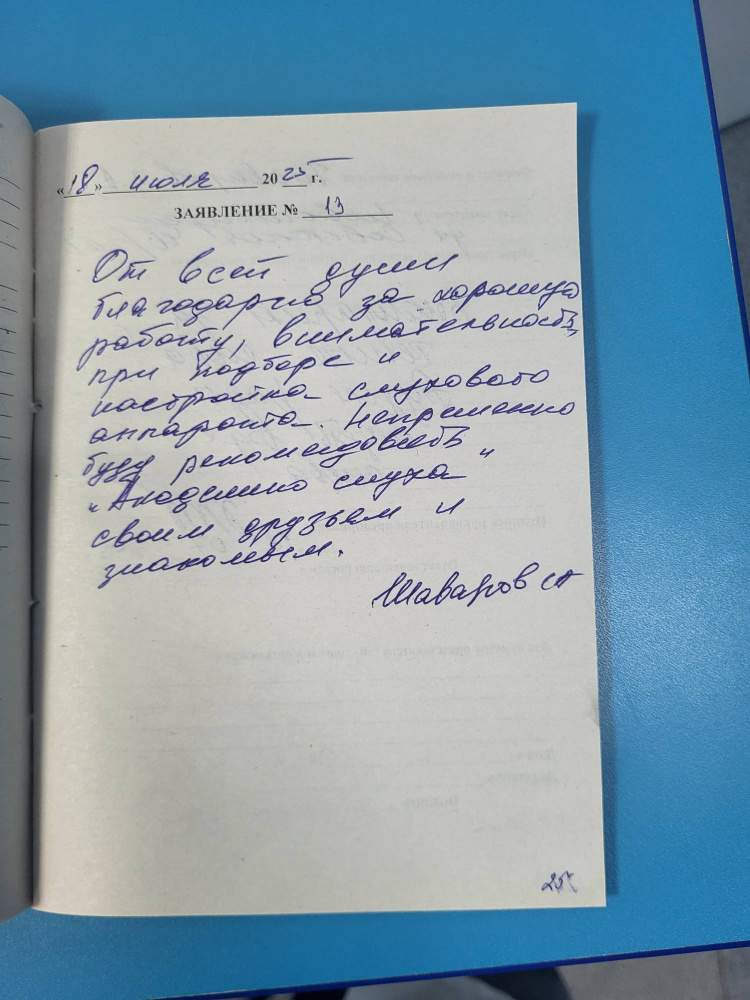 «18» июля 2025 г.
ЗАЯВЛЕНИЕ № 13
От всей души
благодарю за хорошую
работу, внимательность,
при подборе и
настройка слухового
аппарата. Непременно
буду рекомендовать
"Академию слуха"
своим друзьям и
знакомым.
Шаваров